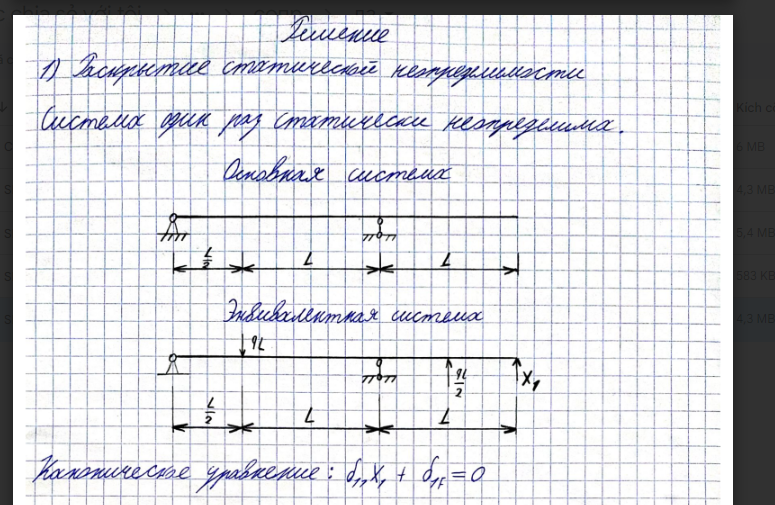 Решение
1) Раскрытие статической неопределимости
Система один раз статически неопределима.
Основная система
L/2 L L
Эквивалентная система
qL
qL/2 X₁
L/2 L L
Каноническое уравнение: δ₁₁X₁ + δ₁F = 0
Kích c
6 MB
4,3 MB
583 KB